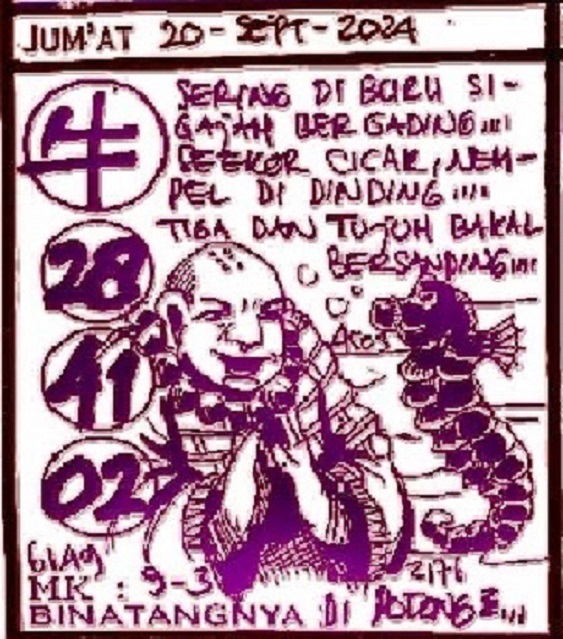 JUM'AT 20-SEPT-2024
牛
SERING DI BURU SI-
GAJAH BERGADING....
SEEKOR CICAK, NEM-
PEL DI DINDING....
TIGA DAN TUJUH BAKAL
BERSANDING....
28
41
02
MK : 9-3
2176
BINATANGNYA DI POTONG 2....